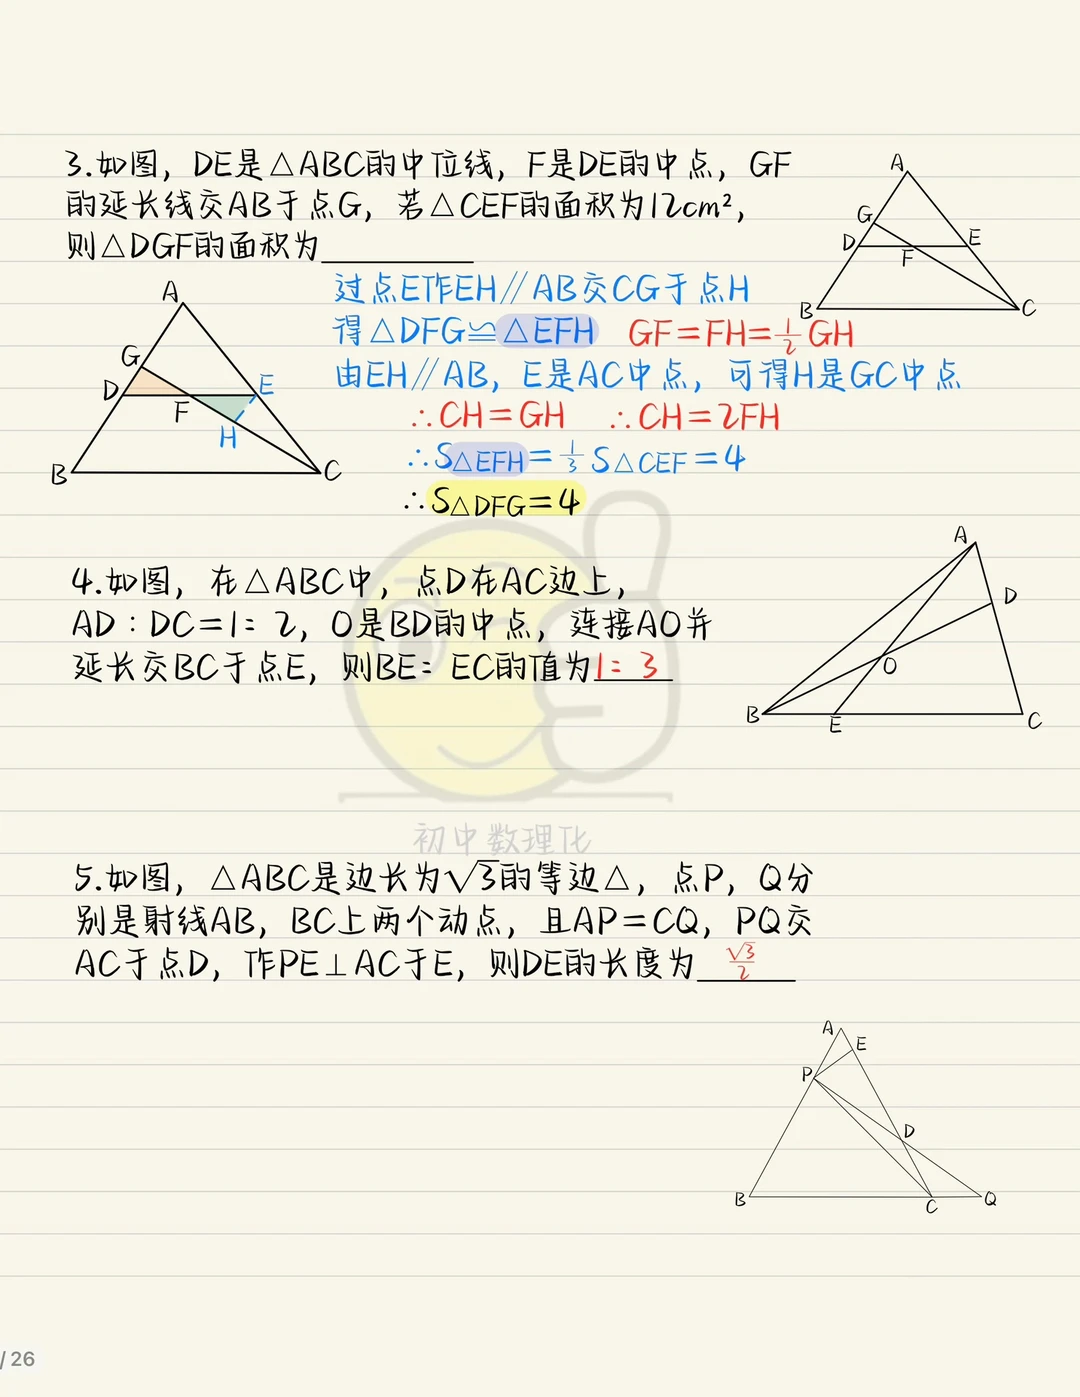 3.如图，DE是△ABC的中位线，F是DE的中点，GF
的延长线交AB于点G，若△CEF的面积为12cm²，
则△DGF的面积为______
A
G
D
E
F
B
C
过点E作EH∥AB交CG于点H
得△DFG≌△EFH GF=FH=½GH
由EH∥AB，E是AC中点，可得H是GC中点
∴CH=GH ∴CH=2FH
∴S△EFH=⅓S△CEF=4
∴S△DFG=4
A
G
D
E
F
H
B
C
4.如图，在△ABC中，点D在AC边上，
AD：DC=1：2，O是BD的中点，连接AO并
延长交BC于点E，则BE：EC的值为1：3
A
D
O
B
E
C
初中数理化
5.如图，△ABC是边长为√3的等边△，点P，Q分
别是射线AB，BC上两个动点，且AP=CQ，PQ交
AC于点D，作PE⊥AC于E，则DE的长度为√3/2
A
E
P
D
B
C
Q
/26